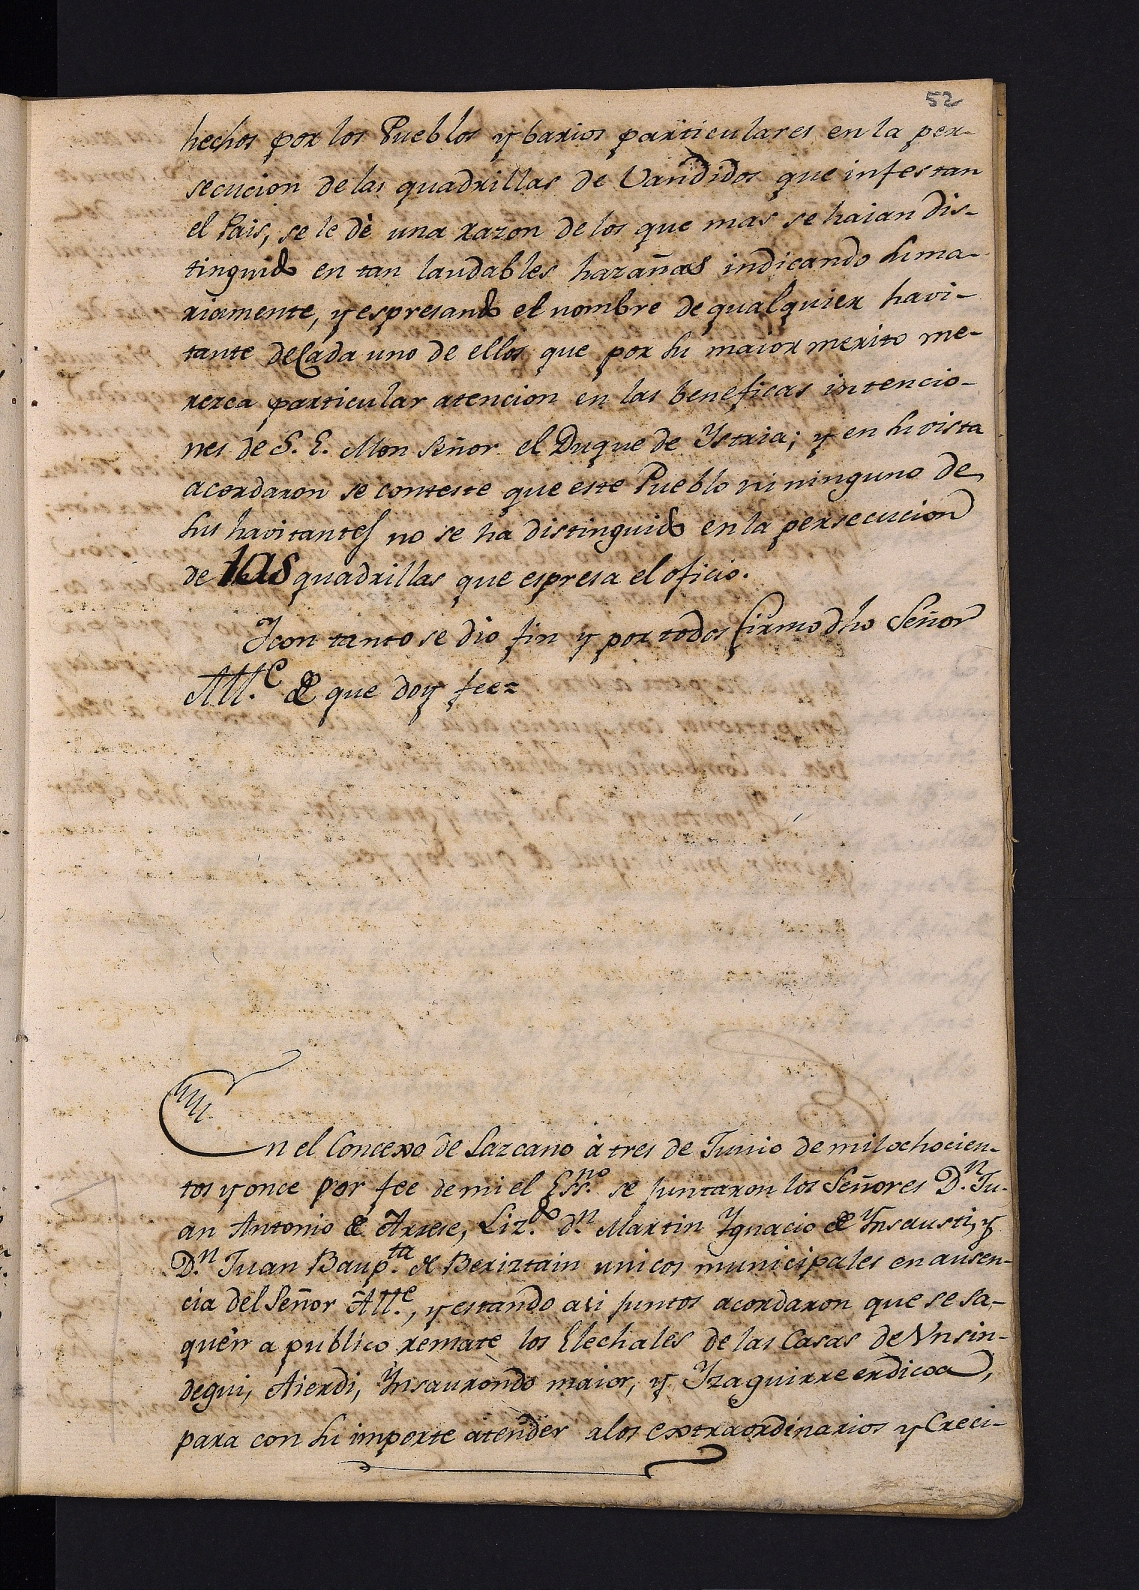 52
hechos por los Pueblos y barios particulares en la per-
secucion de las quadrillas de Vandidos que infestan
el Pais, se le dè una razon de los que mas se haian dis-
tinguido en tan laudables hazañas indicando suma-
riamente, y espresando el nombre de qualquier havi-
tante de Cada uno de ellos que por su maior merito me-
rezca particular atencion en las beneficas intencio-
nes de S. E. Mon Señor el Duque de Ystria; y en su vista
acordaron se conteste que este Pueblo ni ninguno de
sus havitantes no se ha distinguido en la persecucion
de las quadrillas que espresa el oficio.
Y con tanto se dio fin y por todos firmo dho Señor
All.e de que doy fee=
En el Concexo de Lazcano à tres de Junio de mil ochocien-
tos y once por fee de mi el Esn.no se juntaron los Señores D.n Ju-
an Antonio de Arrese, Liz.do d.n Martin Ygnacio de Ynsausti, y
D.n Juan Baup.ta de Beriztain unicos municipales en ausen-
cia del Señor All.e, y estando asi juntos acordaron que se sa-
quen a publico remate los Elechales de las Casas de Vnsin-
degui, Aierdi, Ynsaurondo maior, y Yzaguirre erdicoa,
para con su importe atender a los extraordinarios y Creci-